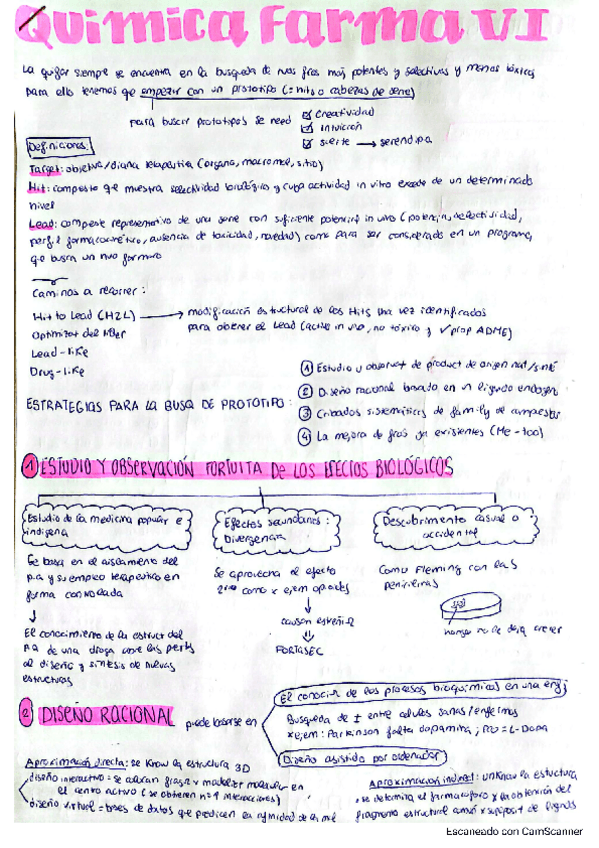 QUIMICA FARMA VI
La quifar siempre se encuentra en la busqueda de nvos frcos más potentes y selectivos y menos tóxicos
para ello tenemos que empezar con un prototipo (= hits o cabezas de serie)
para buscar prototipos se need
creatividad
intuición
suerte → serendipia
Definiciones:
Target: objetivo/diana terapeutica (organo, macromol, sitio)
Hit: compuesto que muestra selectividad biológica y cuya actividad in vitro excede de un determinado
nivel
Lead: compuesto representativo de una serie con suficiente potencial in vivo (potencia, selectividad,
perfil farmacocinético, ausencia de toxicidad, novedad) como para ser considerado en un programa,
que busca un nvo farmaco
Caminos a recorrer:
Hit to Lead (H2L) → modificación estructural de los Hits una vez identificados
para obtener el Lead (activo in vivo, no tóxico y √ prop ADME)
Optimizat del líder
Lead-like
Drug-like
ESTRATEGIAS PARA LA BUSQ DE PROTOTIPO:
① Estudio y observat de product de origen nat/sinté
② Diseño racional basado en un ligando endógen
③ Cribados sistemáticos de family de compuestos
④ La mejora de frcos ya existentes (Me-too)
① ESTUDIO Y OBSERVACIÓN FORTUITA DE LOS EFECTOS BIOLÓGICOS
Estudio de la medicina popular e
indígena
Efectos secundarios:
Divergencia
Descubrimiento casual o
accidental
Se basa en el aislamiento del
p.a y su empleo terapeutico en
forma controlada
↓
El conocimiento de la estruct del
p.a de una droga abre las perts
al diseño y síntesis de nuevas
estructuras
Se aprovecha el efecto
2rio como x ejem opiodes
↓
causan estreñi
⇓
FORTASEC
Como Fleming con las
penicilinas
hongo no le deja crecer
② DISEÑO RACIONAL puede basarse en
El conocim de los procesos bioquimicos en una enf
Busqueda de ≠ entre celulas sanas/enfermas
x ejem: Parkinson falta dopamina; = L-Dopa
Diseño asistido por ordenador
Aproximación directa: se know la estructura 3D
diseño interactivo = se utilizan grafica y modeliza molecular en
el centro activo (se obtienen nº 1 interacciones)
diseño virtual = bases de datos que predicen la afinidad de la mol
Aproximación indirect: unknow la estuctura
, se determina el farmacoforo x la obtención del
fragmento estructural común x superposit de ligandos
Escaneado con CamScanner